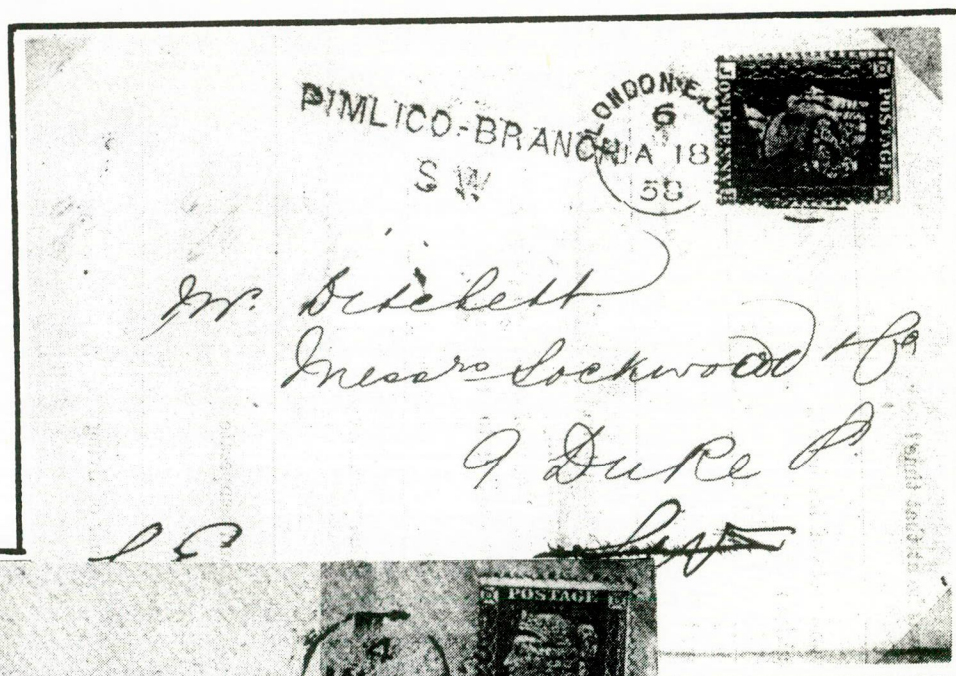 PIMLICO-BRANCH
S W
LONDON E.C
6
JA 18
58
POSTAGE
ONE PENNY
Mr. Ditchett
Messrs Lockwood & Co
9 Duke St
S E
POSTAGE
4